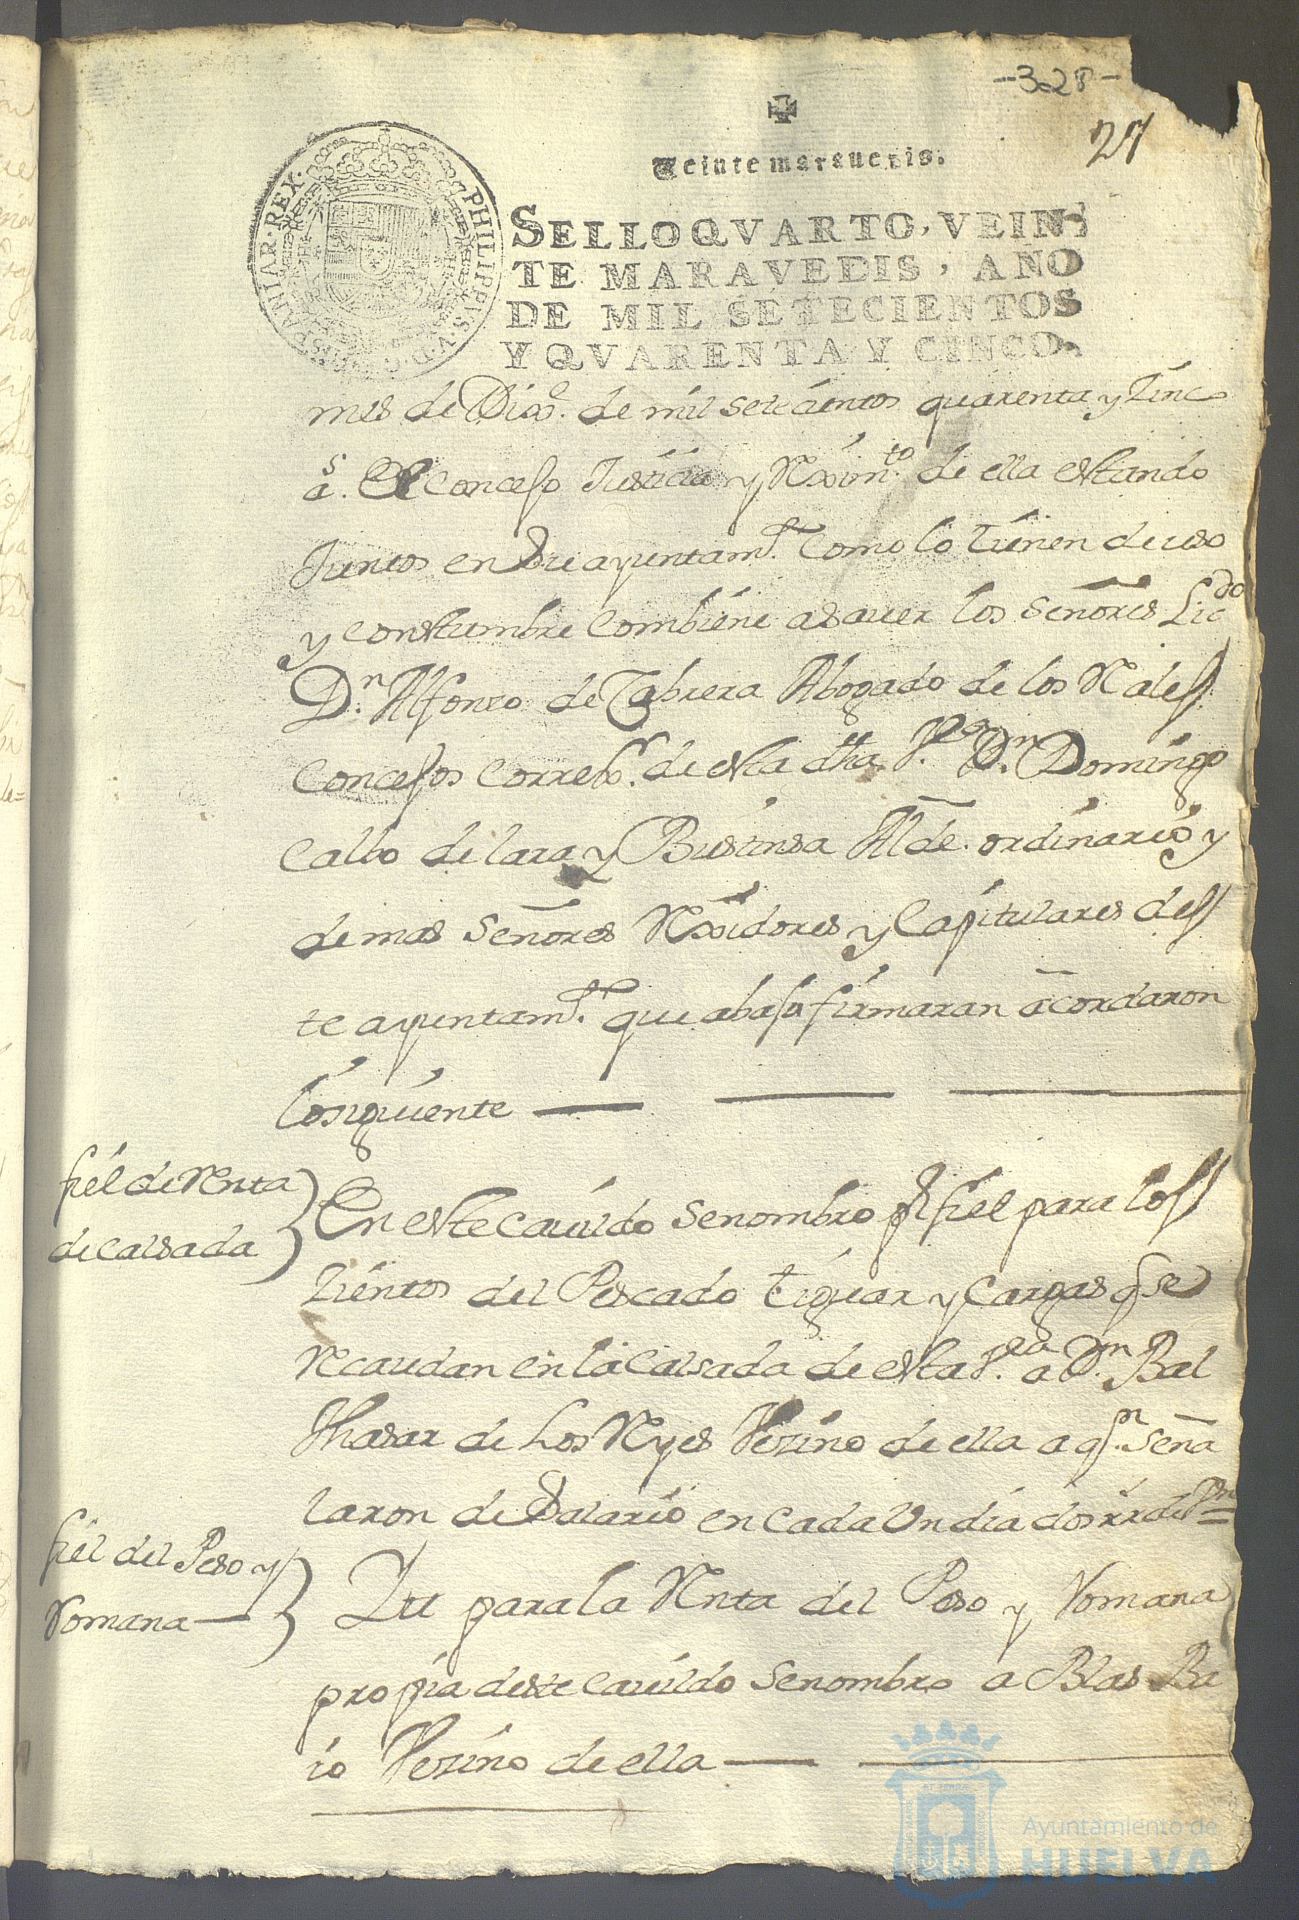 -328-
27
Veinte marauedis.
PHILIPPVS·V·D·G· HISPANIAR·REX·
SELLO QVARTO, VEIN-
TE MARAVEDIS, AÑO
DE MIL SETECIENTOS
Y QVARENTA Y CINCO.
mes de Dixe. de mil setecientos quarenta y Zinc
as. El Concejo Justicia y Rexim.to de ella estando
Juntos en Su ayuntam.to Como lo tienen de uso
y Constumbre Combiene asauer los Señores Licdo
Dn. Alfonso de Cabrera Abogado de los Rales
Concejos Correxr. de esta dha Va. Dn. Domingo
Calbo de lara y Bustinsa Alde. ordinario y
demas Señores Rexidores y Capitulares des
te ayuntam.to que abajo firmaran acordaron
lo siguiente
fiel de Renta
de calsada
En este Cauildo se nombro pr. fiel para los
Zientos del Pescado tiguar y Cargas q se
Recaudan en la Calsada de esta Va. a Dn. Bal
thasar de Los Reyes Vezino de ella a qn. Seña
laron de Salario en Cada Un dia dos rr de Vn
fiel del Peso y
Romana
Itt para la Renta del Peso y Romana
propia deste Cauildo se nombro a Blas Ba
io Vezino de ella
Ayuntamiento de
HUELVA